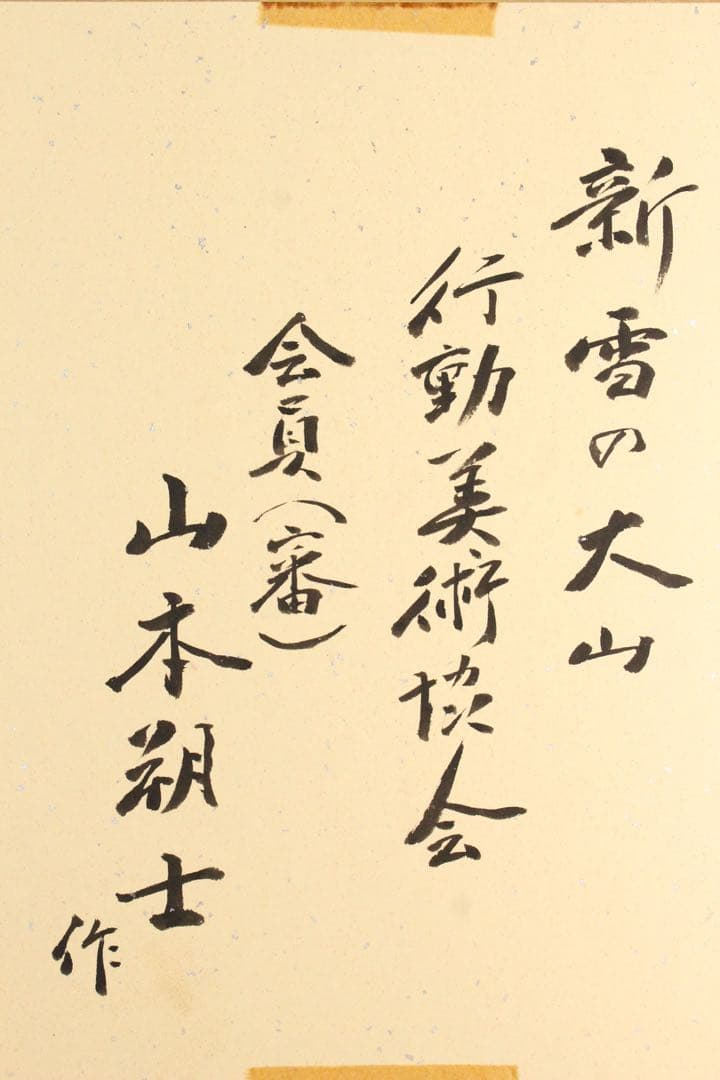 新雪の大山
行動美術協会
会員（審）
山本朔士
作